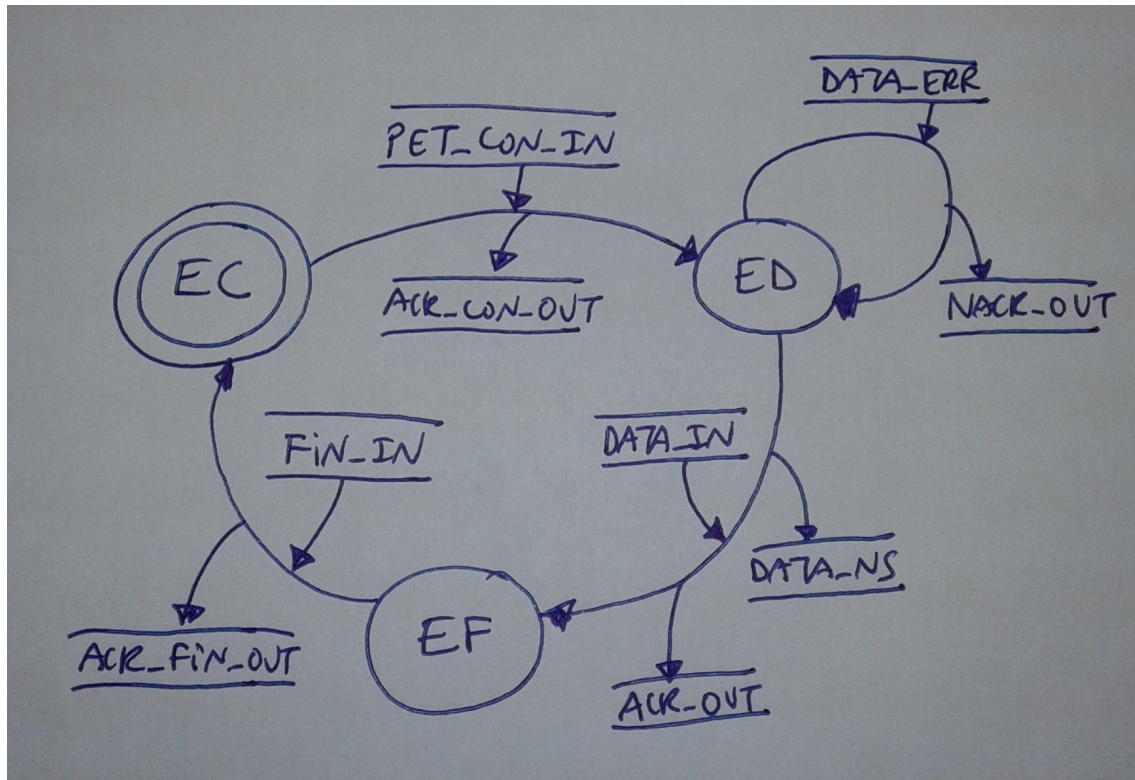 DATA_ERR
PET_CON_IN
EC
ED
ACK_CON_OUT
NACK_OUT
FiN_IN
DATA_IN
DATA_NS
EF
ACK_FiN_OUT
ACK_OUT